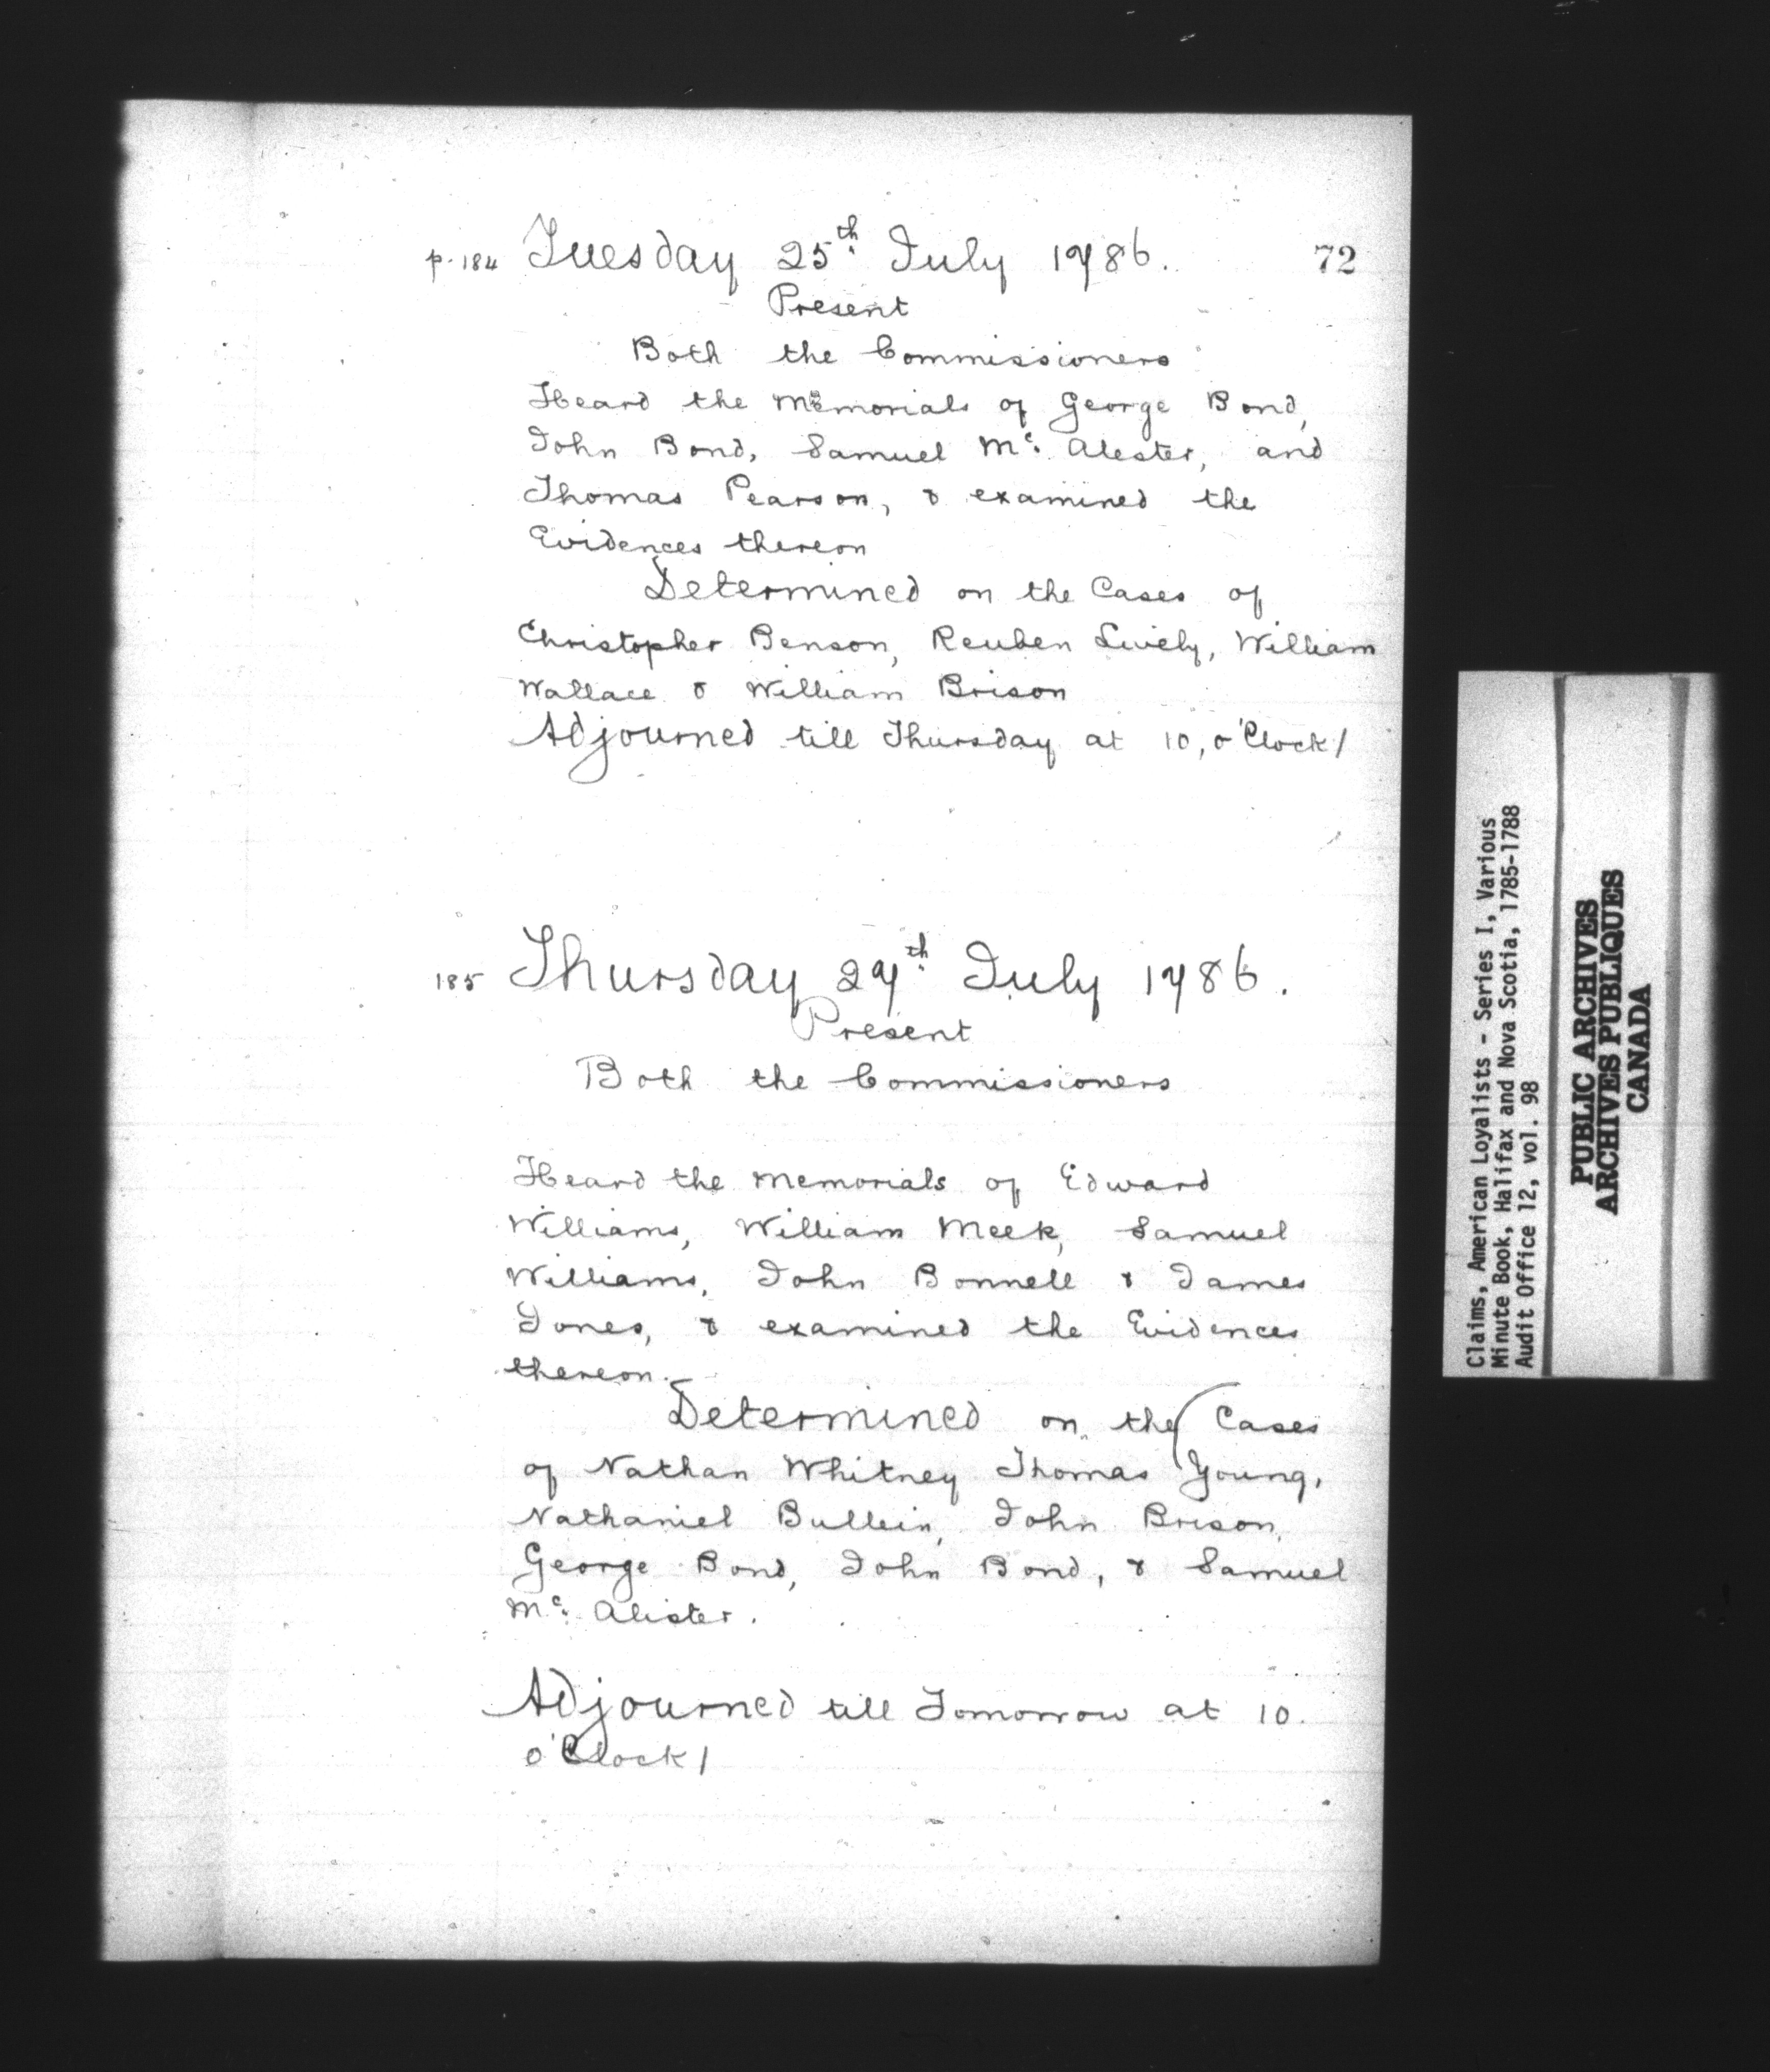 p. 184 Tuesday 25th July 1786. 72
Present
Both the Commissioners
Heard the Memorials of George Bond,
John Bond, Samuel Mc. Alester, and
Thomas Pearson, & examined the
Evidences thereon
Determined on the Cases of
Christopher Benson, Reuben Lively, William
Wallace & William Brison
Adjourned till Thursday at 10, o'Clock/
185 Thursday 27th July 1786.
Present
Both the Commissioners
Heard the Memorials of Edward
Williams, William Meek, Samuel
Williams, John Bonnell & James
Jones, & examined the Evidences
thereon.
Determined on the Cases
of Nathan Whitney Thomas Young,
Nathaniel Bullein, John Brison,
George Bond, John Bond, & Samuel
Mc. Alister.
Adjourned till Tomorrow at 10.
o'Clock/
Claims, American Loyalists - Series I, Various
Minute Book, Halifax and Nova Scotia, 1785-1788
Audit Office 12, vol. 98
PUBLIC ARCHIVES
ARCHIVES PUBLIQUES
CANADA